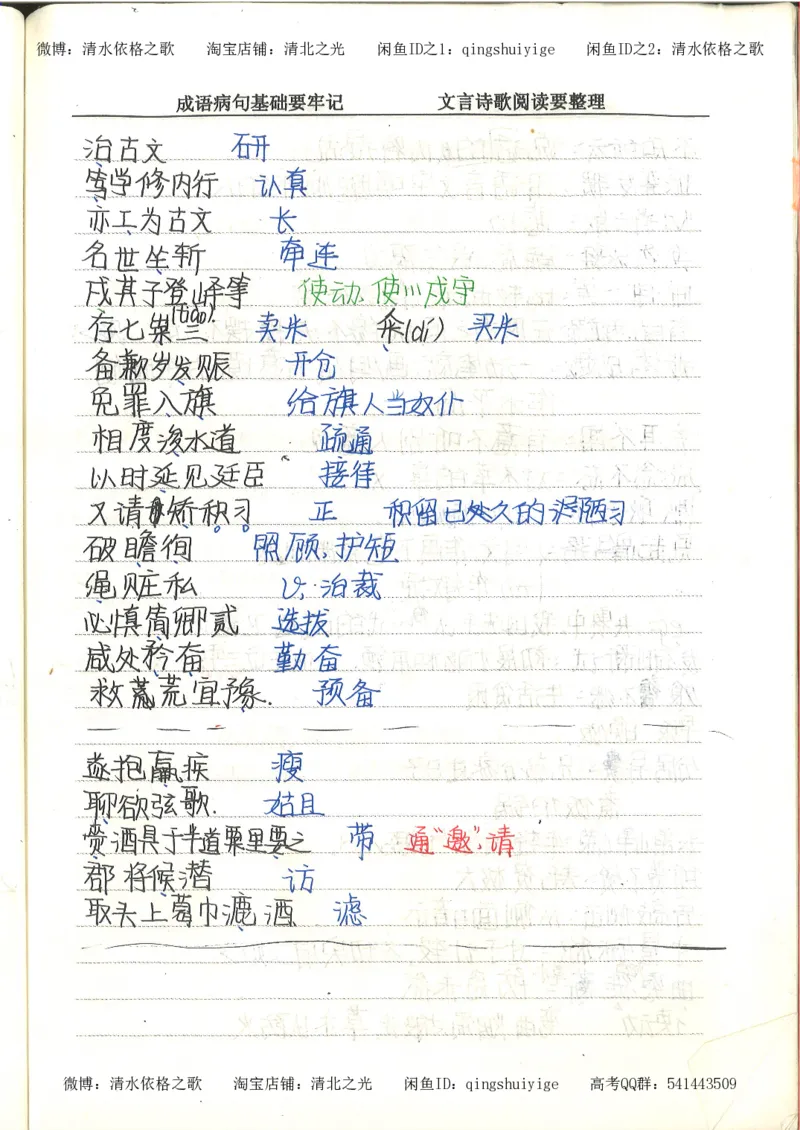 微博：清水依格之歌 淘宝店铺：清北之光 闲鱼ID之1：qingshuiyige 闲鱼ID之2：清水依格之歌
成语病句基础要牢记 文言诗歌阅读要整理
治古文 研
笃学修内行 认真
亦工为古文 长
名世坐斩 牵连
戍其子登峄等 使动,使川戍守
(tiào)
存七粜三 卖米 籴(dí) 买米
备歉岁发赈 开仓
免罪入旗 给旗人当奴仆
相度浚水道 疏通
以时延见廷臣 接待
又请矫积习 正 积留已处久的陋习
破瞻徇 照顾,护短
绳赃私 v,治裁
必慎简卿贰 选拔
咸处矜奋 勤奋
救荒宜豫. 预备
遂抱羸疾 瘦
聊欲弦歌. 姑且
赍酒具于半道栗里要之 带 通“邀”,请
郡将候潜 访
取头上葛巾漉酒 滤
微博：清水依格之歌 淘宝店铺：清北之光 闲鱼ID：qingshuiyige 高考QQ群：541443509